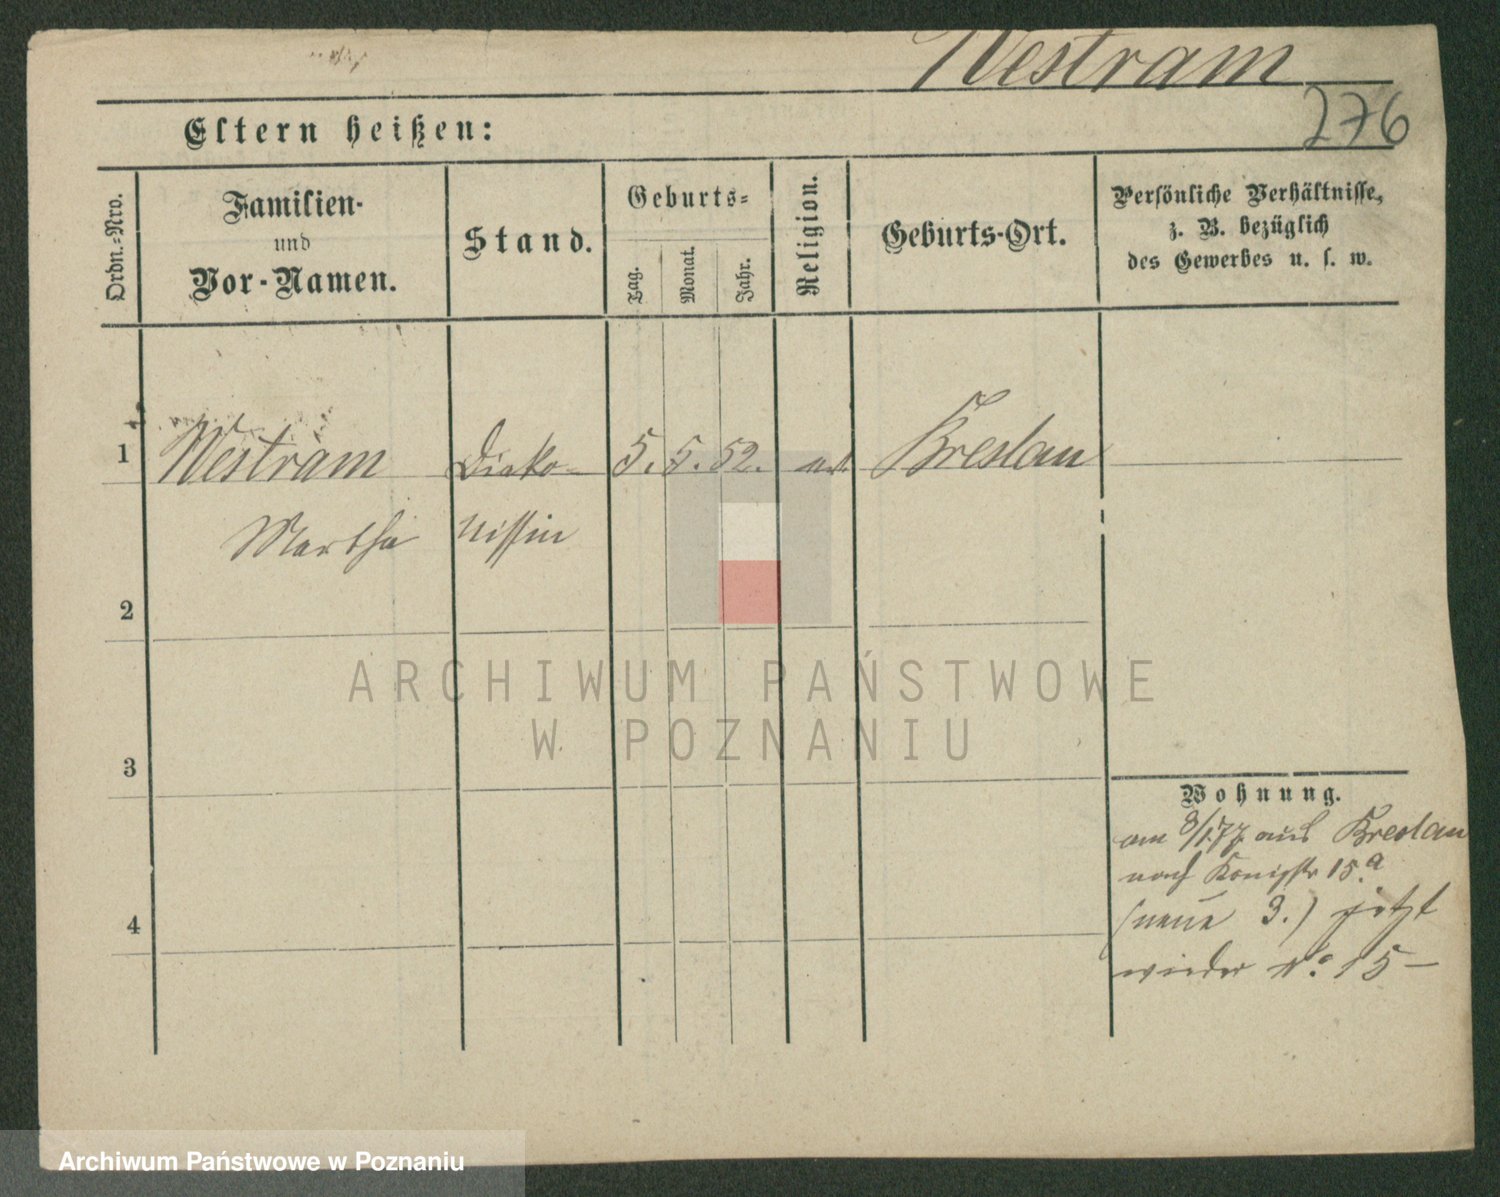 Westram
276
Eltern heißen:
Ordn.-Nro.
Familien-
und
Vor-Namen.
Stand.
Geburts-
Tag.
Monat.
Jahr.
Religion.
Geburts-Ort.
Persönliche Verhältnisse,
z. B. bezüglich
des Gewerbes u. s. w.
1 Westram Diako- 5. 5. 52. Breslau
Martha nissin
2
3
4
Wohnung.
am 8/1.77 aus Breslau
nach Königstr 15.a
(neue 3.) jetzt
wieder No. 15 –
ARCHIWUM PAŃSTWOWE
W POZNANIU
Archiwum Państwowe w Poznaniu